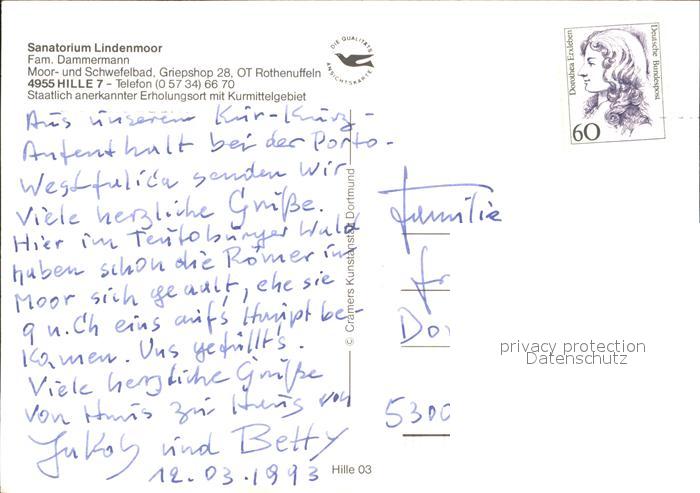 Sanatorium Lindenmoor
Fam. Dammermann
Moor- und Schwefelbad, Griepshop 28, OT Rothenuffeln
4955 HILLE 7 - Telefon (0 57 34) 66 70
Staatlich anerkannter Erholungsort mit Kurmittelgebiet
DIE QUALITÄTS ANSICHTSKARTE
Dorothea Erxleben
Deutsche Bundespost
60
Aus unserem Kur-Kurz-
Aufenthalt bei der Porto-
Westfalica senden wir
Viele herzliche Grüße.
Hier im Teutoburger Wald
haben schon die Römer im
Moor sich geaalt, ehe sie
9 n. Ch eins aufs Haupt be-
kamen. Uns gefällt's.
Viele herzliche Grüße
von Haus zu Haus von
Jakob und Betty
12.03.1993
© Cramers Kunstanstalt Dortmund
Hille 03
Familie
Fr
Do
5300
privacy protection
Datenschutz